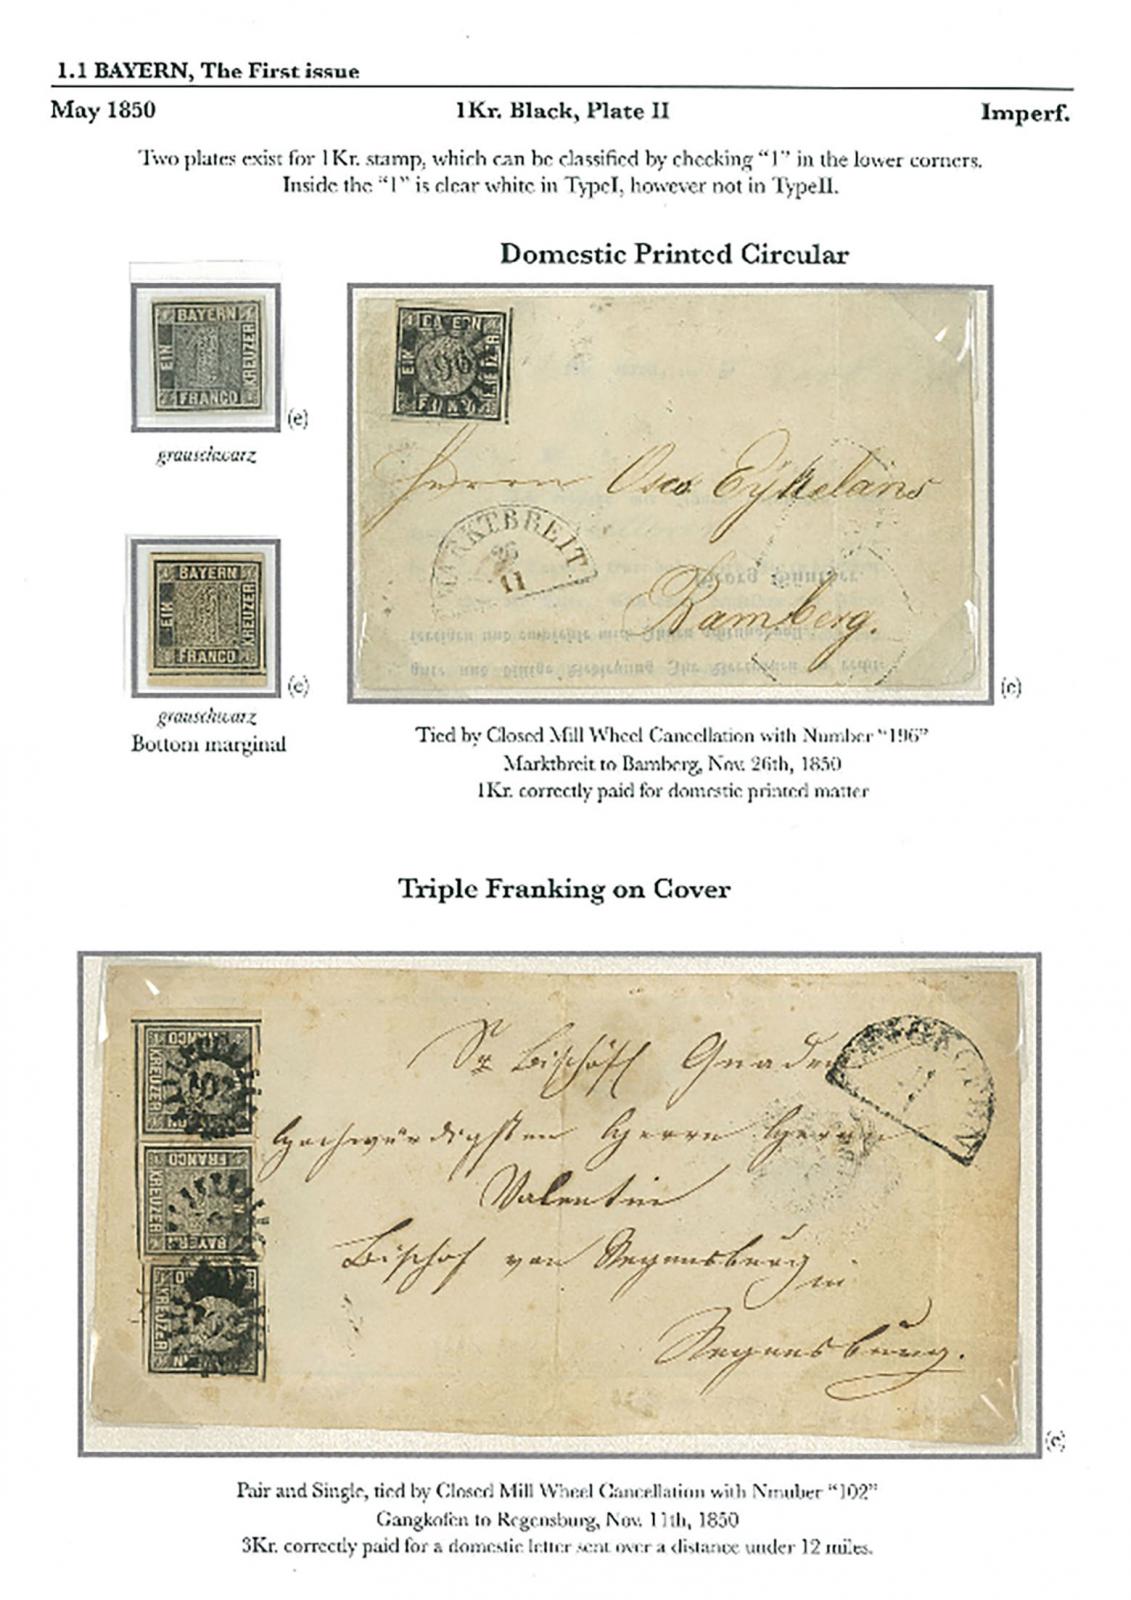 1.1 BAYERN, The First issue
May 1850 1Kr. Black, Plate II Imperf.
Two plates exist for 1Kr. stamp, which can be classified by checking “1” in the lower corners.
Inside the “1” is clear white in TypeI, however not in TypeII.
Domestic Printed Circular
BAYERN
EIN
KREUZER
FRANCO
(e)
grauschwarz
BAYERN
EIN
KREUZER
FRANCO
(e)
grauschwarz
Bottom marginal
196
Herrn
MARKTBREIT
26
11
Bamberg.
(c)
Tied by Closed Mill Wheel Cancellation with Number “196”
Marktbreit to Bamberg, Nov. 26th, 1850
1Kr. correctly paid for domestic printed matter
Triple Franking on Cover
FRANCO
KREUZER
FRANCO
KREUZER
KREUZER
Sr Bischöfl Gnaden
Hochwürdigsten Herrn Herrn
Valentin
Bischof von Regensburg
in
Regensburg.
Pair and Single, tied by Closed Mill Wheel Cancellation with Nmuber “102”
Gangkofen to Regensburg, Nov. 11th, 1850
3Kr. correctly paid for a domestic letter sent over a distance under 12 miles.